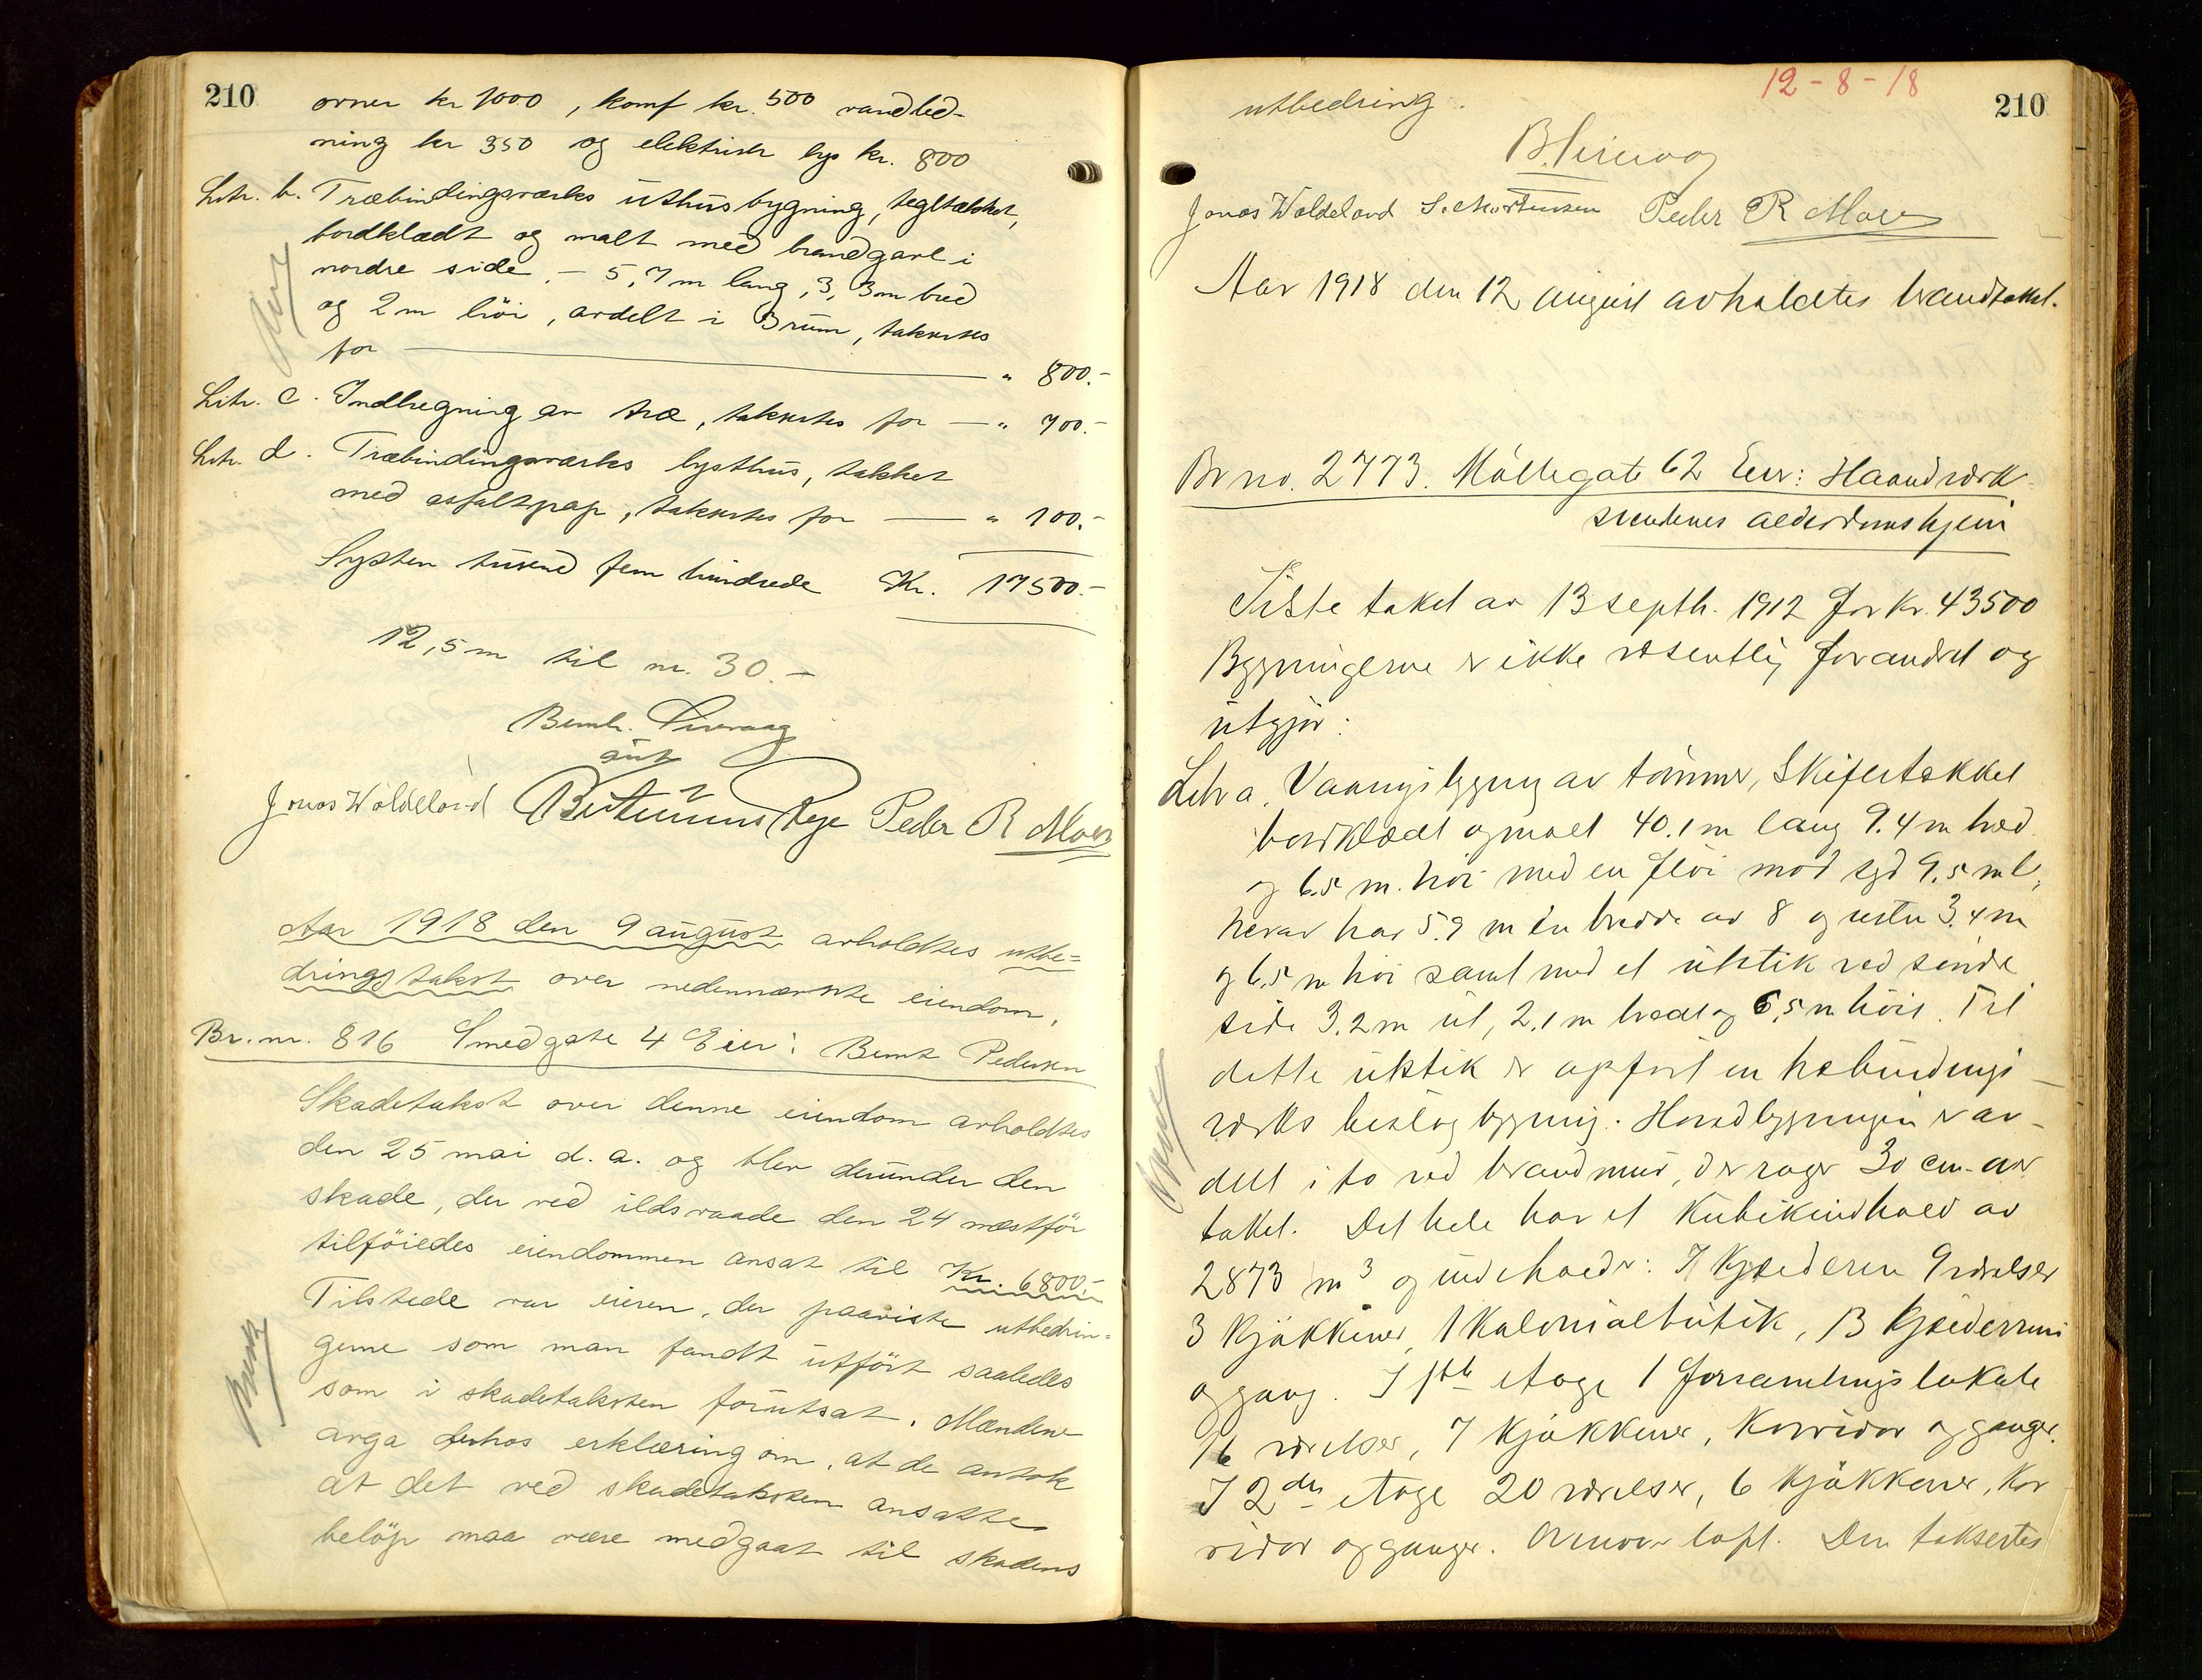 210
ovner kr 1000, komf kr. 500 vandled-
ning kr 350 og elektrisk lys kr. 800
Litr. b. Træbindingsverks uthusbygning, tegltækket,
bordklædt og malt med brandgavl i
nordre side, - 5,7 m lang, 3,3 m bred
og 2 m höi, avdelt i 3 rum, takstes
for — " 800.-
Litr. c. Indhegning av træ, takstes for — " 700.-
Litr. d. Træbindingsverks lysthus, tækket
med asfaltpap, takstes for — " 100.-
Sytten tusend fem hundrede Kr. 17500.-
12,5 m til nr. 30.-
Bernh.
Jonas Wåldeland Peder R Moen
Aar 1918 den 9 august avholdtes utbe=
dringstakst over nedennævnte eiendom.
Br. nr. 816 Smedgate 4 Eier: Bernt Pedersen
Skadetakst over denne eiendom avholdtes
den 25 mai d. a. og blev derunder den
skade, der ved ildsvaade den 24 næstför
tilföiedes eiendommen ansat til Kr. 6800.-
Tilstede var eieren, der paaviste utbedrin=
gerne som man fandt utfört saaledes
som i skadetaksten forutsat. Mændene
avga derhos erklæring om, at de antok
at det ved skadetaksten ansatte
belöp maa være medgaat til skadens
12-8-18
210
utbedring.
Jonas Wåldeland S. Mortensen Peder R Moen
Aar 1918 den 12 august avholdtes brandtakst.
Br no. 2773. Möllegate 62 Eier: Haandverk
svendenes alderdomshjem
Siste takst av 13 septb. 1912 for kr. 43500
Bygningerne er ikke væsentlig forandret og
utgjör:
Litr a. Vaaningsbygning av tömmer, skifertækket
bordklædt og malt 40.1 m lang 9.4 m bred
og 6.5 m. höi med en flöi mod syd 9.5 m l,
herav har 5.9 m en bredde av 8 og resten 3.4 m
og 6.5 m höi samt med et utstik ved söndre
side 3.2 m ut, 2.1 m bredt og 6,5 m höit. Til
dette utstik er opfört en træbindings-
verks beslagbygning. Hovedbygningen er av-
delt i to ved brandmur, der rager 30 cm. over
taket. Det hele har et Kubikindhold av
2873 m³ og indeholder: I kjelderen 9 værelser
3 kjökkener, 1 kolonialbutik, 13 kjelderrum
og gang. I 1ste etage 1 forsamlingslokale
16 værelser, 7 kjökkener, korridor og ganger.
I 2den etage 20 værelser, 6 kjökkener, kor
ridor og ganger. Ovenover loft. Den taksertes